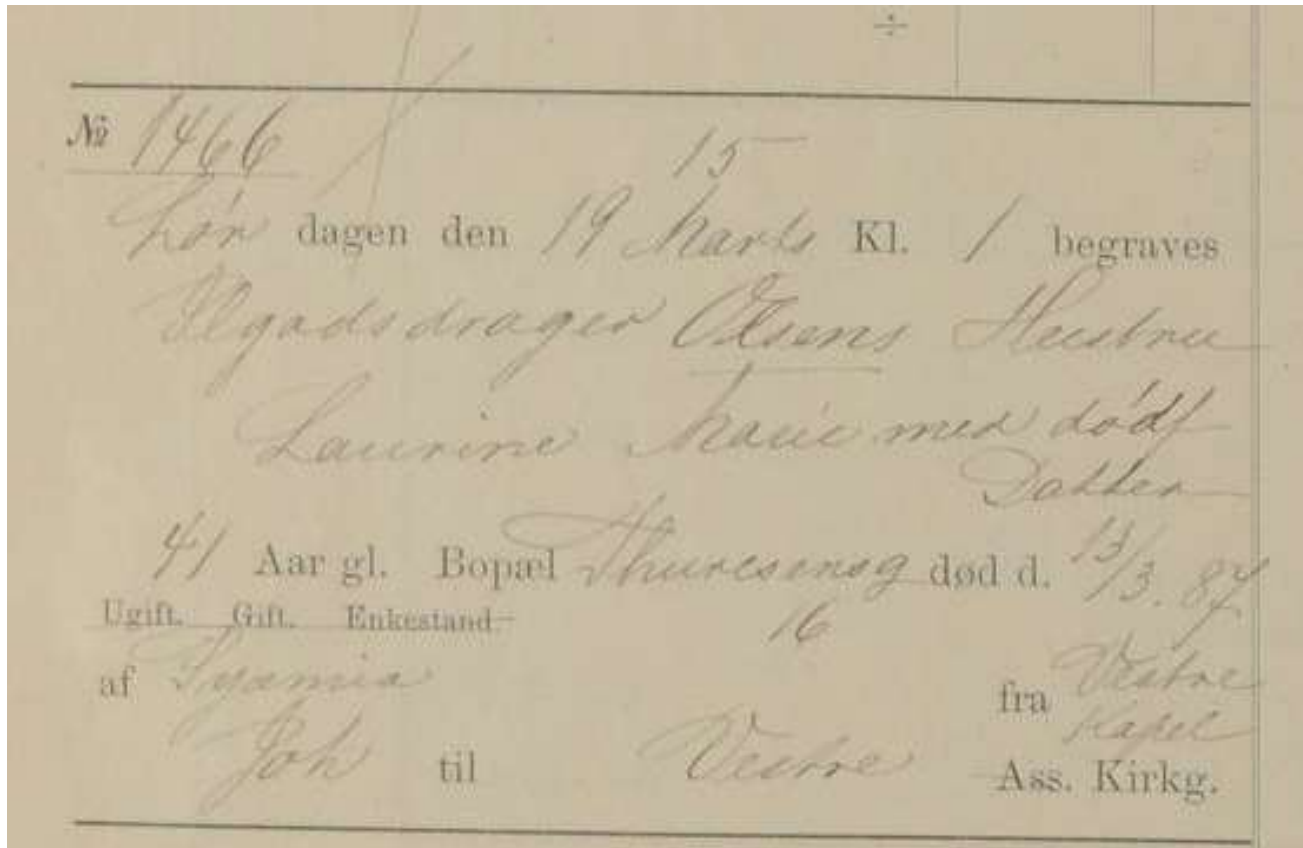 ÷
№ 1466
15
Lør dagen den 19 Marts Kl. 1 begraves
Ølgadsdrager Olsens Hustru
Laurine Marie med dødf
Datter
41 Aar gl. Bopæl Thuresensg død d. 13/3. 87.
Ugift. Gift. Enkestand. 16
af Pyæmia fra Vestre
Kapel
Joh til Vestre Ass. Kirkg.